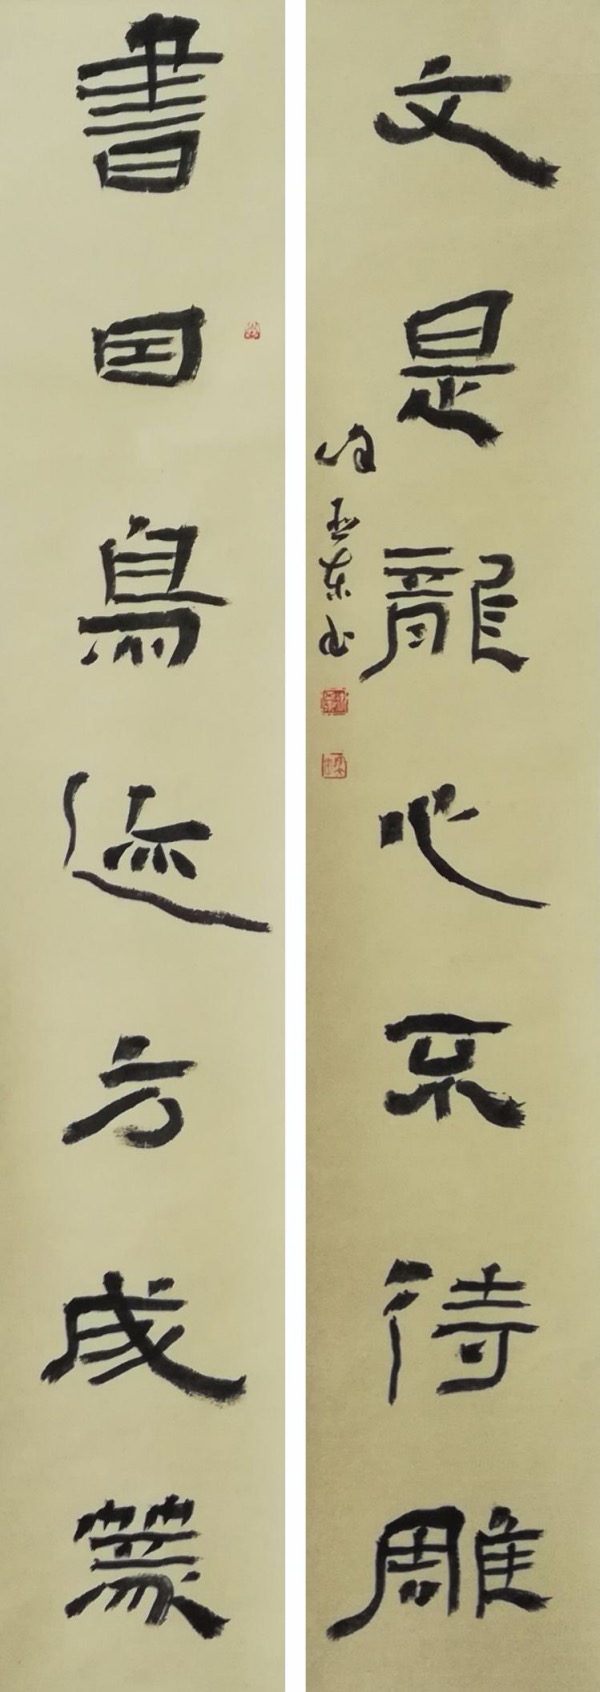 書因鳥迹方成篆
文是龍心不待雕
亚东书